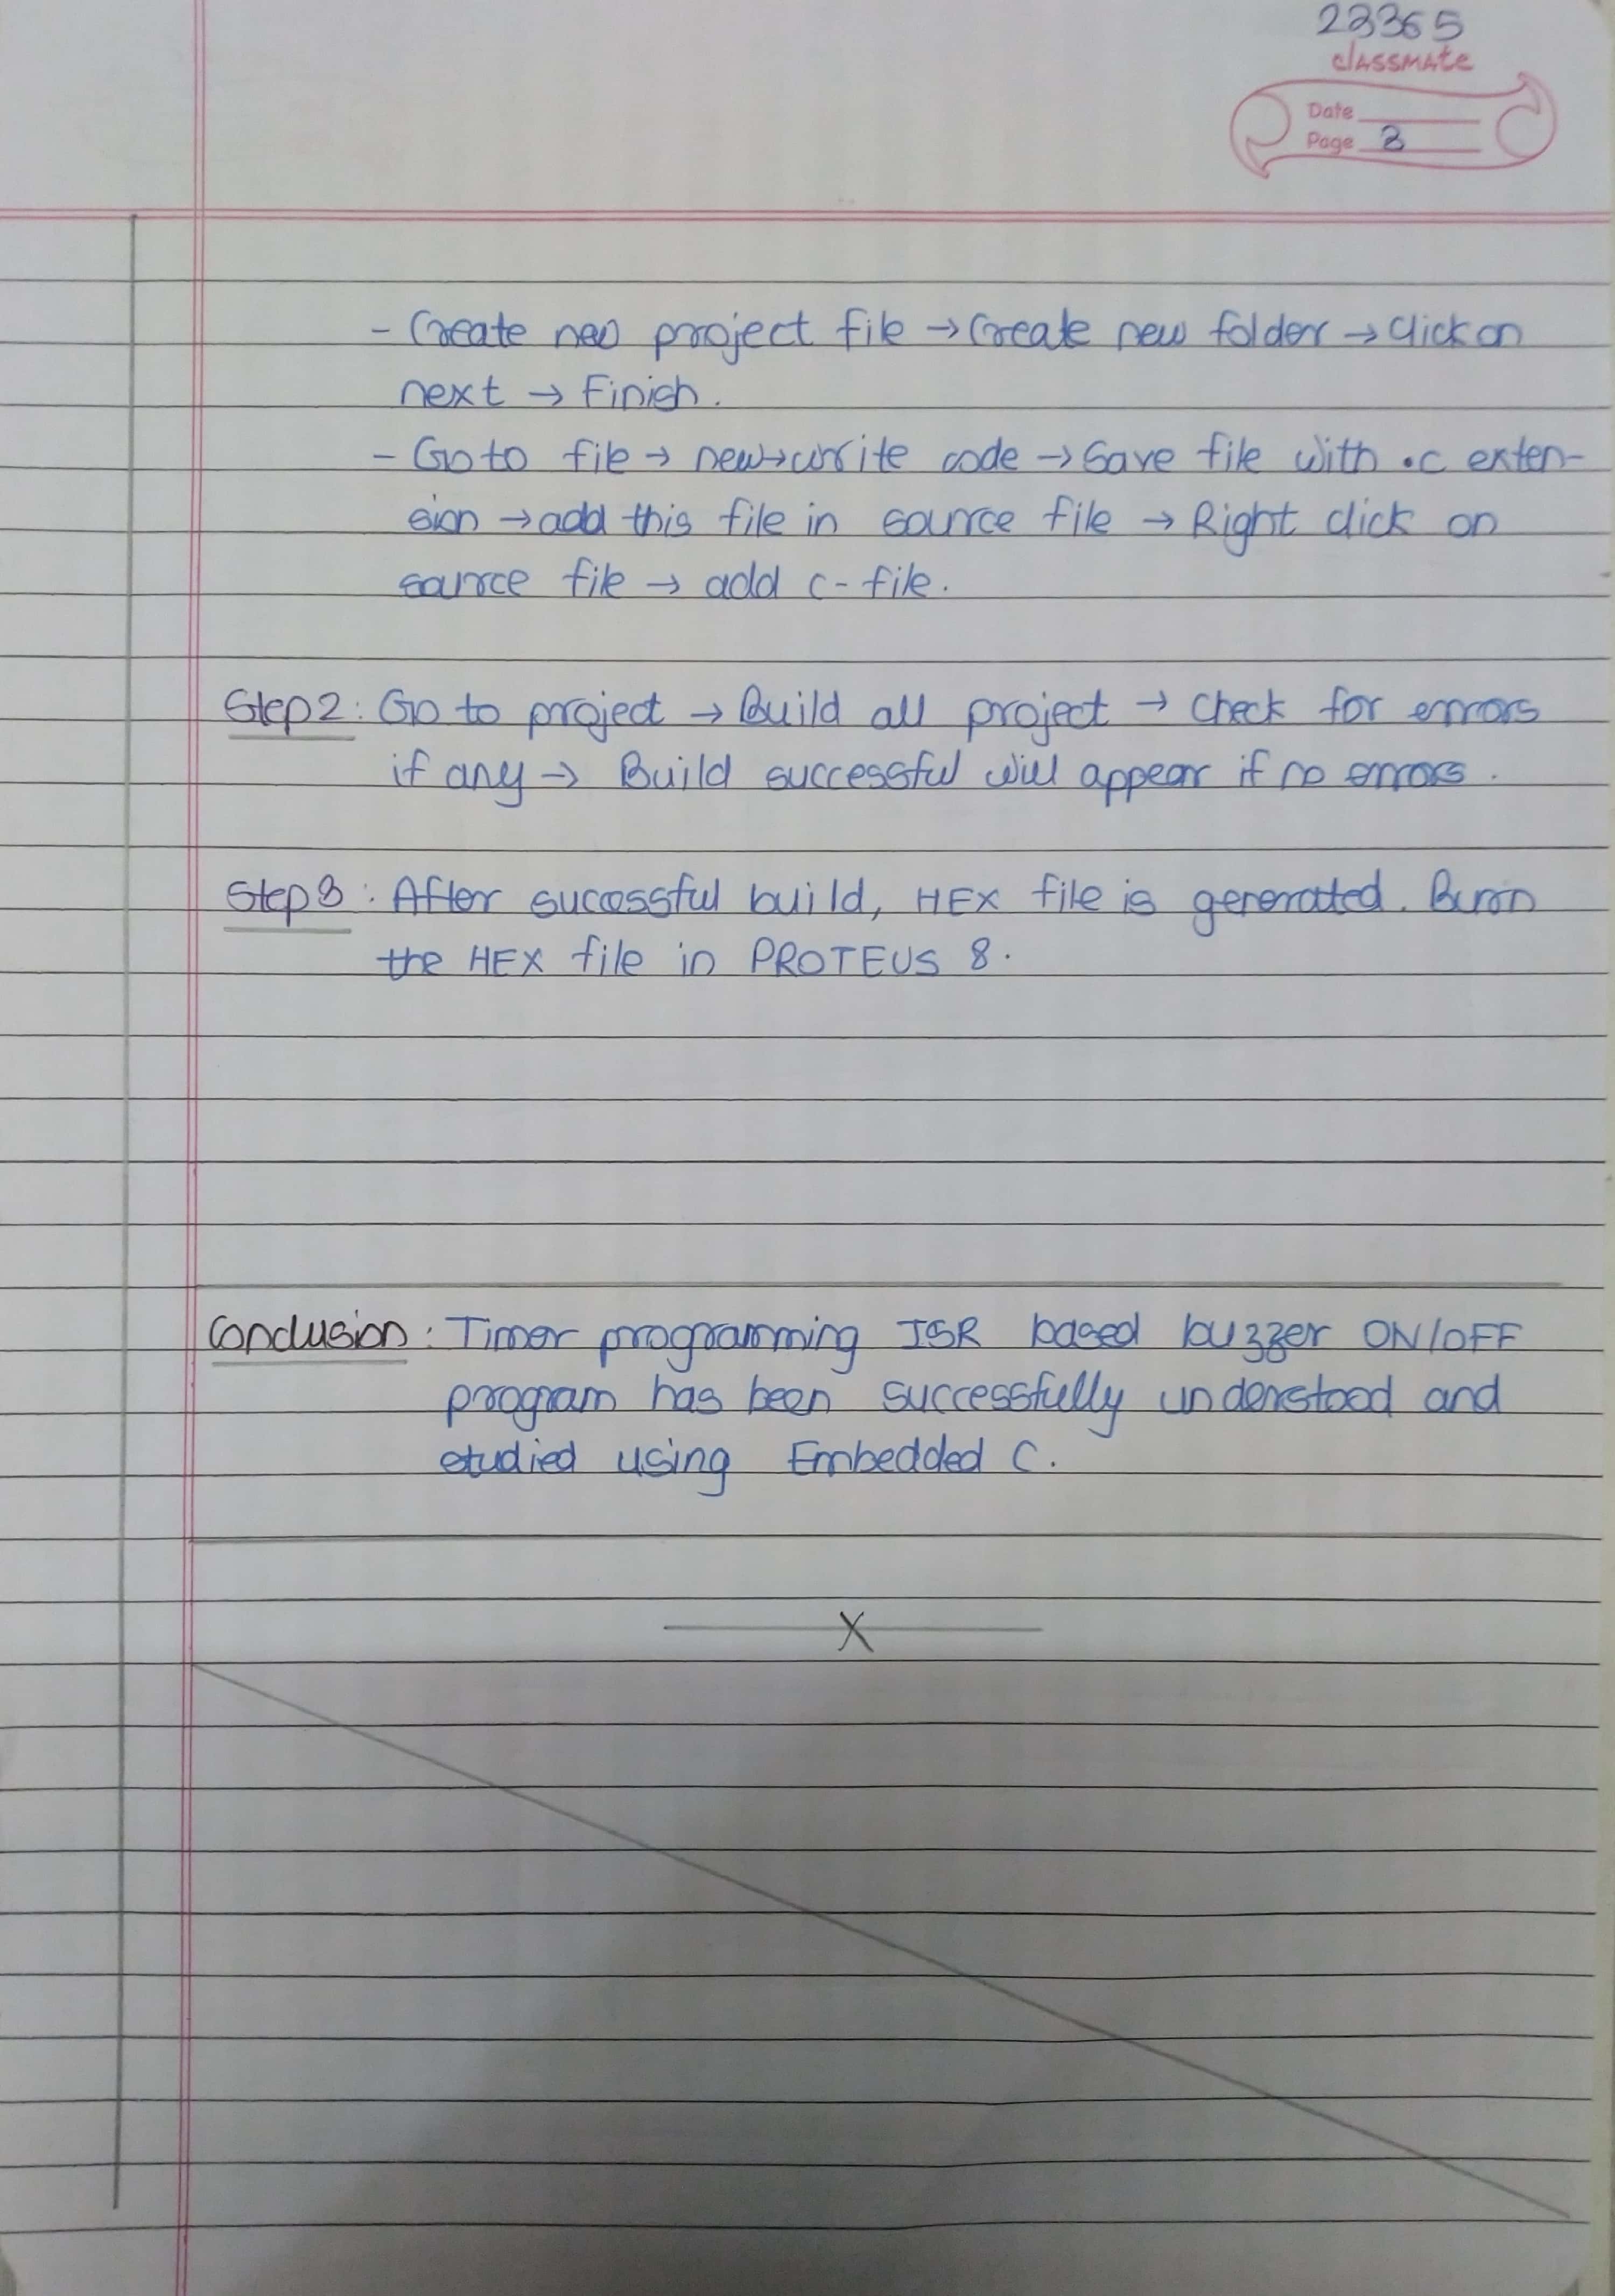 23365
classmate
Date
Page 3
- Create new project file → Create new folder → Click on
next → Finish.
- Go to file → new → write code → Save file with .c exten-
sion → add this file in source file → Right click on
source file → add c-file.
Step 2: Go to project → Build all project → Check for errors
if any → Build successful will appear if no errors.
Step 3: After sucessful build, HEX file is generated. Burn
the HEX file in PROTEUS 8.
Conclusion: Timer programming ISR based buzzer ON/OFF
program has been successfully understood and
studied using Embedded C.
X